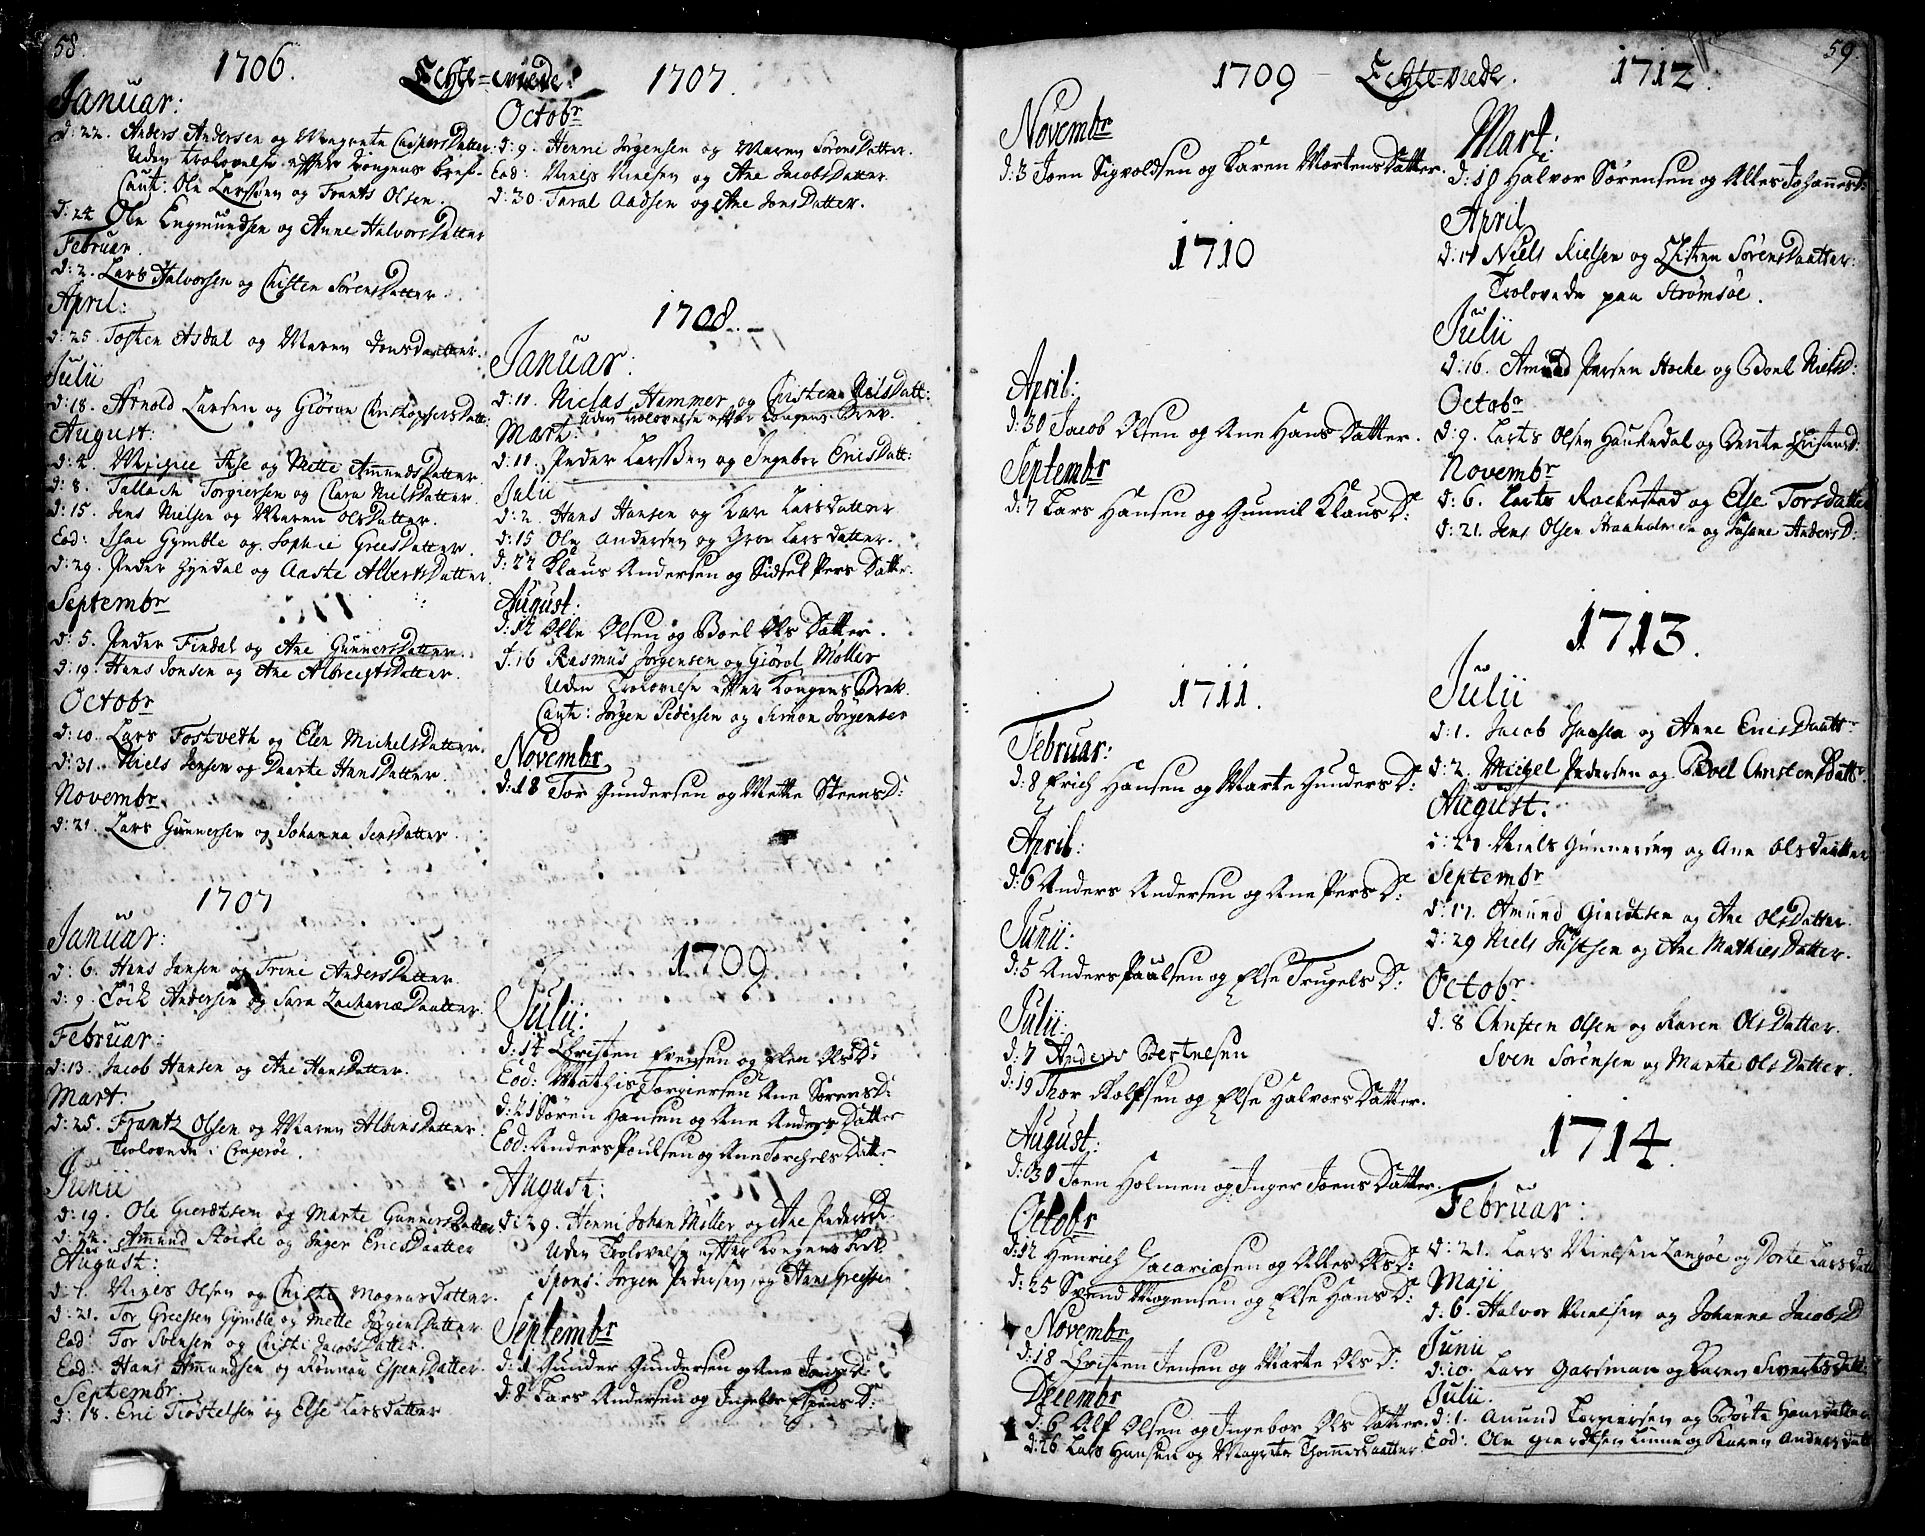 58.
1706.
Echte-viede.
Januar:
d: 22. Anders Andersen og Margrete CaspersDatter.
Uden trolovelse efter Kongens bref.
Caut: Ole Larssen og Frants Olsen.
d: 24 Ole Engmundsen og Anne HalvorsDatter
Februar.
d: 2. Lars Halvorsen og Christen SörensDatter
April:
d: 25. Tosten Asdal og Maren JonsDaatter.
Julii
d: 18. Arnold Larsen og Giöran ChristophersDatt:
August:
d: 4. og Mette AmundsDatter
d: 8. Tallach Torgiersen og Clara NielsDatter
d: 15. Jens Nielsen og Maren OlsDatter.
Eod: Isac Gymble og Sophie GreesDatter.
d: 29. Peder Gyndal og Aaste AlbertsDatter
Septembr
d: 5. Peder Findal og Ane GunnersDatter.
d: 19. Hans Jonsen og Ane AlbregtsDatter.
Octobr
d: 10. Lars Fostveth og Elen MichelsDatter.
d: 31. Niels Jensen og Daarte HansDatter.
Novembr
d: 21. Lars Gunnersen og Johanna JensDatter.
1707
Januar:
d: 6. Hans Jansen og Trine AndersDatter
d: 9. Andersen og Sara ZachariæDaatter.
Februar:
d: 13. Jacob Hansen og Ane HansDatter.
Mart.
d: 25. Frantz Olsen og Maren AlbensDatter.
Trolovede i
Junii
d: 19. Ole Gierdtsen og Marte GunnersDatter
d: 24. Amund Stöcke og Inger EricsDaatter
August:
d: 1. Niels Olsen og Christi MognusDatter.
d: 21. Tor Greessen Gymble og Mette JörgensDatter
Eod: Tor Svensen og Christi JacobsDatter.
Eod: Hans Amundsen og Rönnau EspensDatter.
Septembr
d: 18. Eric Trostelsen og Else LarsDatter
1707.
Octobr
d: 9. Henric Jörgensen og Maren SörensDatter.
Eod: Niels Nielsen og Ane JacobsDatter
d: 30. Taral Aadsen og Ane JonsDatter.
1708.
Januar:
d: 11. Niclas Hammer og Christence NeilsDatt:
Uden trolovelse efter Kongens Brev.
Mart:
d: 11. Peder Larssen og Ingebor EricsDatt:
Julii
d: 2. Hans Hansen og Kari LarsDatter
d: 15 Ole Andersen og Groe Lars datter.
d: 22 Klaus Andersen og Sidsel Pers Datter.
August:
d: 12 Olle Olsen og Boel Ols Datter.
d. 16 Rasmus Jörgensen og Giörol Möller
Uden Trolovelse efter Kongens Brev.
Caut: Jörgen Pedersen og Simon Jörgensen
Novembr
d: 18 Tor Gundersen og Mette SteensD:
1709
Julii:
d: 14 Christen Evensen og Elen OlsD:
Eod: Mathis Torgiersen Ane SörensD:
d: 21 Sören Hansen og Ane Anders Datter
Eod: Anders Poulsen og Ane Torchels Datter
August:
d: 29. Henric Johan Möller og Ane PedersD:
Uden Trolovelse efter Kongens Brev.
Spons: Jörgen Pedersen, og Hans Greessen
Septembr
d: 1 Gunder Gundersen og Ane JonsD:
d: 8 Lars Andersen og Ingebor EspensD:
59.
1709
Echte-viede.
1712.
Novembr
d: 3 Joen Sigvoldsen og Karen MortensDatter.
1710
April:
d: 30 Jacob Olsen og Ane Hans Datter.
Septembr
d: 7 Lars Hansen og Gunnil Klaus D:
1711.
Februar:
d: 8 Erich Hansen og Marte Gunders D:
April:
d: 6 Anders Andersen og Ane Pers D:
Junii:
d: 5 Anders Paulsen og Else Trugels D:
Julii:
d: 7 Anders Bertnelsen
d: 19 Thor Rolfsen og Else Halvors Datter.
August:
d: 30 Joen Holmen og Inger Joens Datter.
Octobr
d: 12 Henrich Zacariæsen og Alles OlsD:
d: 25 Svend Mogensen og Else Hans D:
Novembr
d: 18 Christen Jensen og Marte Ols D:
Decembr
d: 6 Alf Olsen og Ingebor Ols Datter.
d: 26 Lars Hansen og Magrete ThomesDaatter.
Mart:
d: 10 Halvor Sörensen og Alles JohannesD:
April
d: 17 Niels Nielsen og Christen SörensDaatter:
Trolovede paa Strömsöe.
Julii
d: 16. Amund Persen Hocke og Boel NielsD:
Octobr
d: 9. Larts Olsen Haukedal og Bente
Novembr
d: 6. Larts Rockestad og Else TorsDatter
d: 21. Jens Olsen og Susane AndersD:
1713.
Julii
d: 1. Jacob Isacsen og Anne EricsDaatter
d: 2. Michel Pedersen og Boel ChristensDatter.
August:
d: 27. Niels Gunnersen og Ane OlsDaatter
Septembr
d: 17. Amund Gierdtsen og Ane OlsDatter.
d: 29 Niels Justsen og Ane MathiesDatter.
Octobr
d: 8 Christen Olsen og Karen OlsDatter.
Sven Sörensen og Marte OlsDatter.
1714.
Februar:
d: 21. Lars Nielsen Langöe og Dorte LarsDatter
Maji
d: 6. Halvor Nielsen og Johanne JacobsD
Junii
d: 10. Lars Garsman og Karen SivertsDatt:
Julii.
d: 1. Anund Torgiersen og Börte HansDatter
Eod: Ole Gierdtsen Linne og Karen AndersDatt